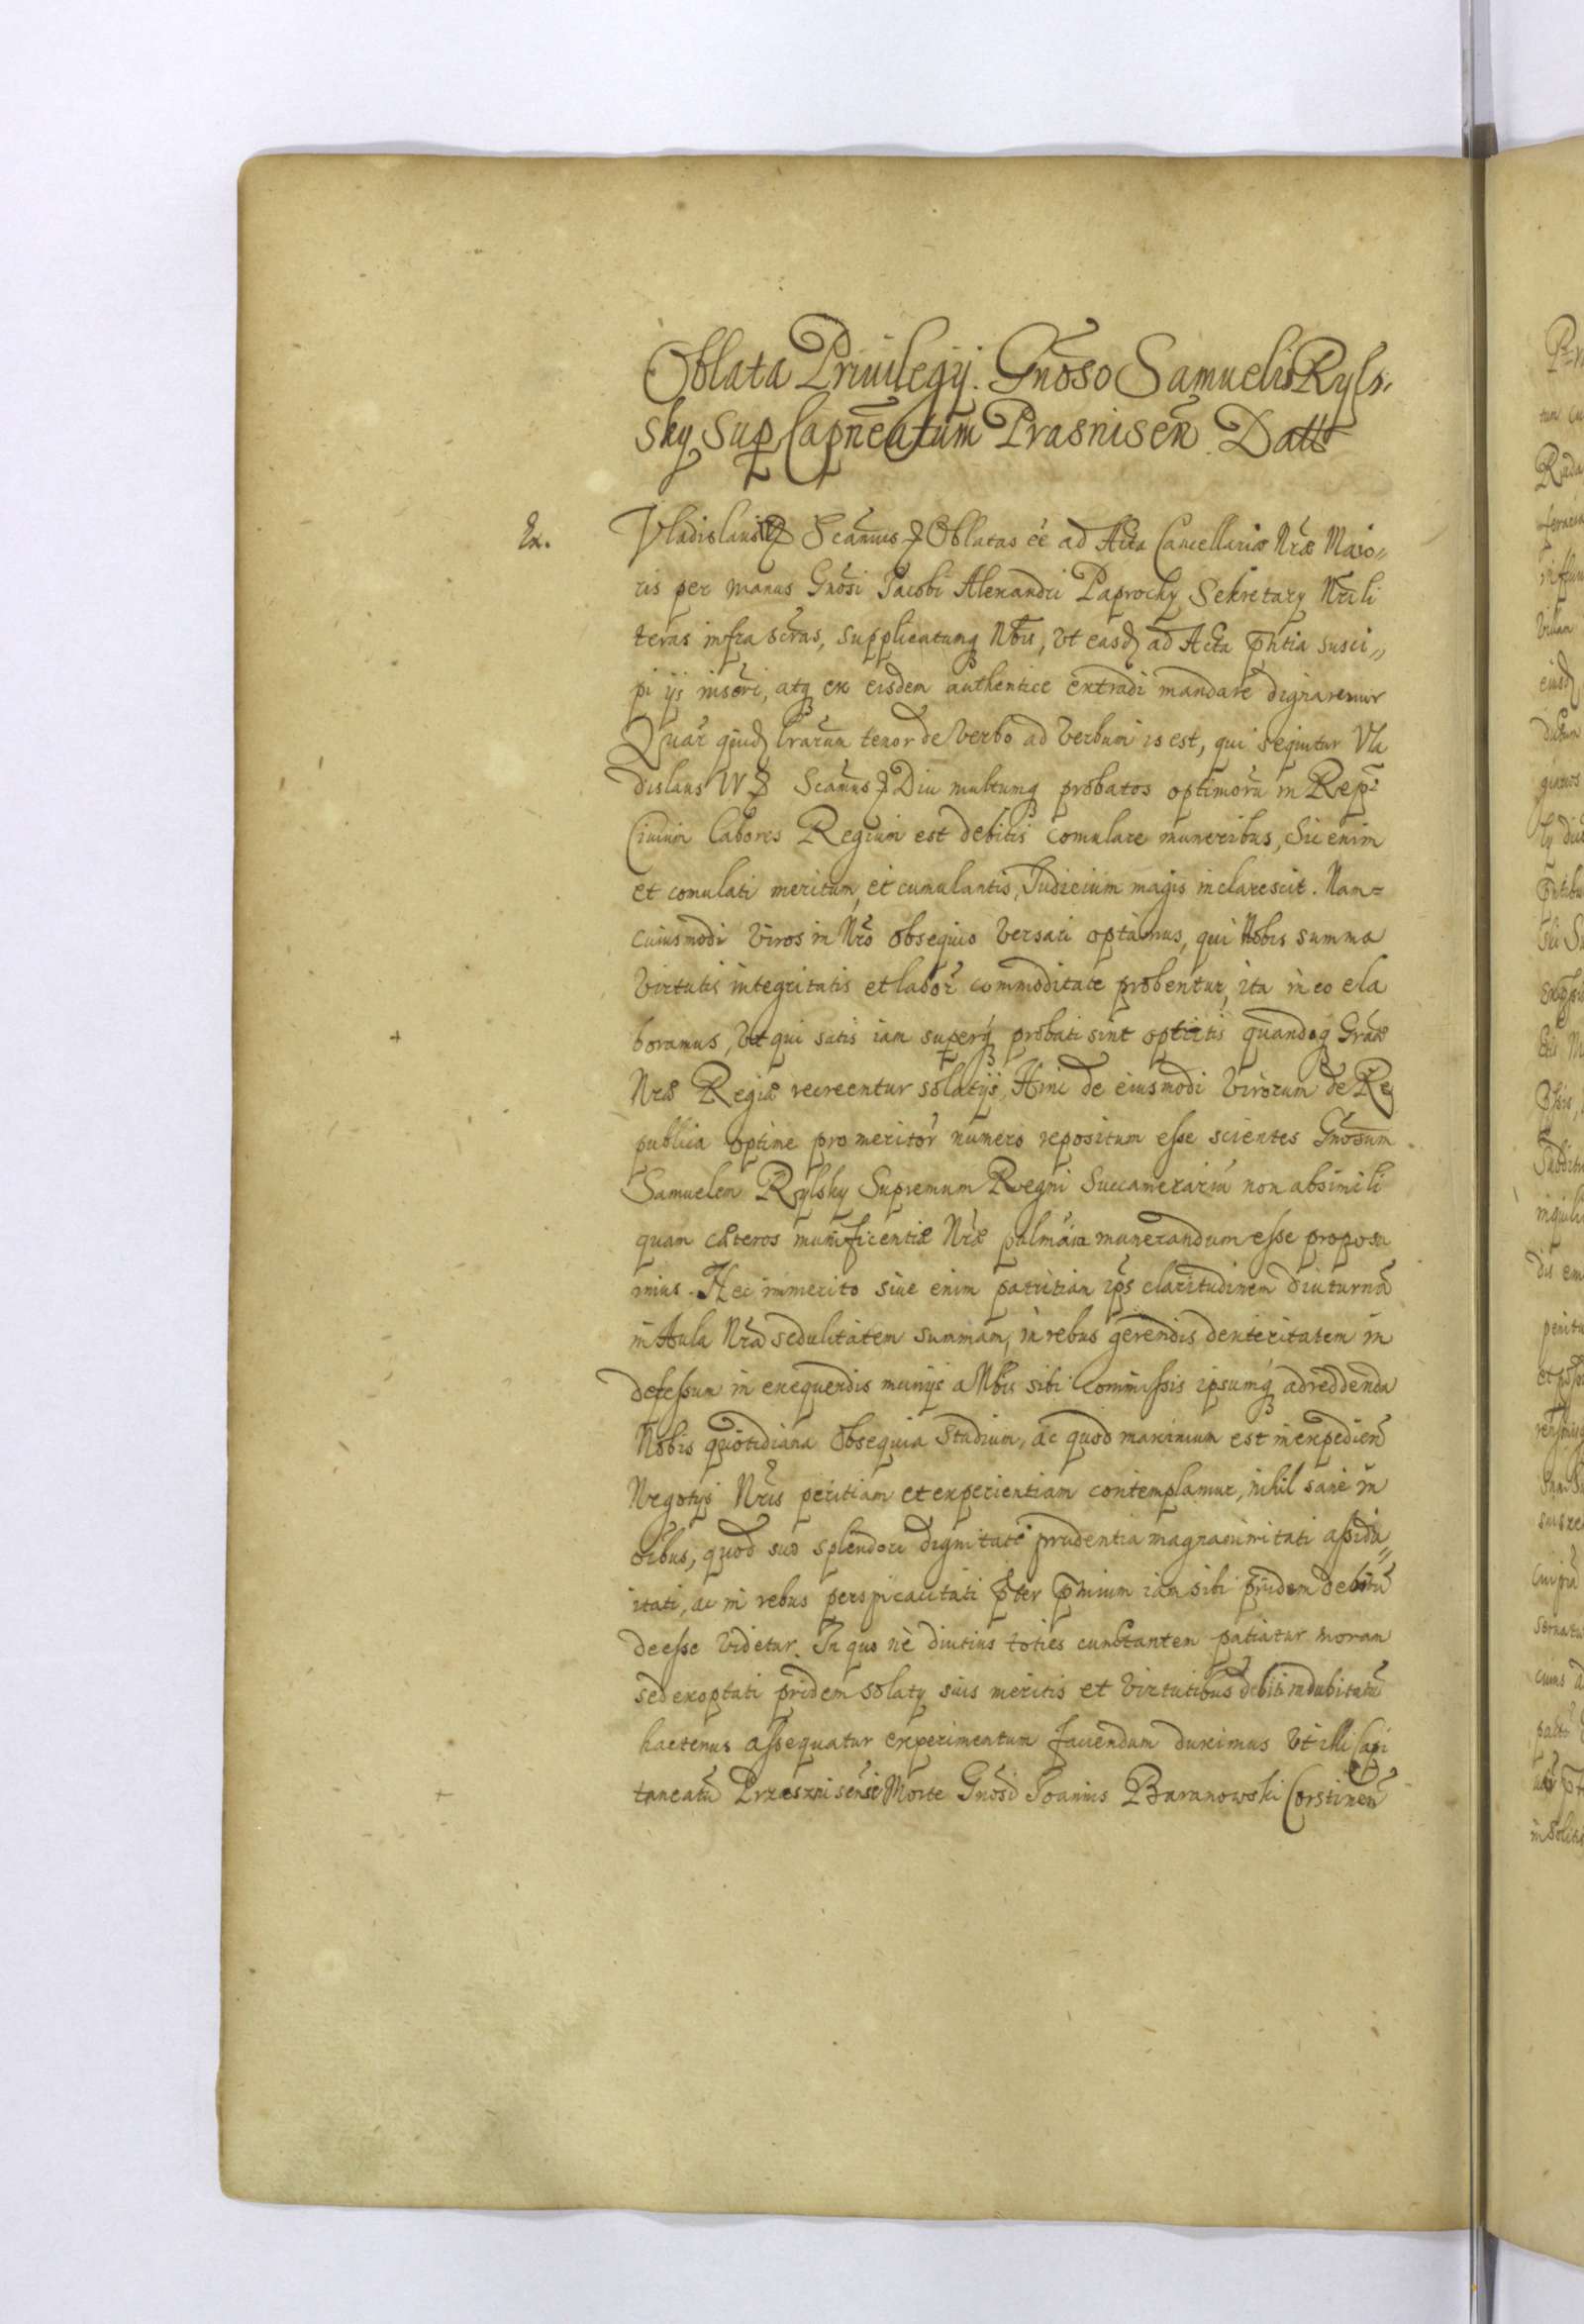 Oblata Priuilegij. Gnõso Samuelis Ryls,
sky sup Capñeatum Prasnisen̄. Datt
Ex.
Vladislaus Scamus Oblatas eē ad Acta Cancellariæ Nr̃æ Maio„
ris per manus Gnõsi Jacobi Alexandri Paprocky Sekretary Nr̃i li
teras infra scr̃as, supplicatumq Nbis, vt easd ad Acta pñtia susci„
pi ijs inseri, atq ex eisdem authentice extradi mandare dignaremur
Quar̃ quid lrarum tenor de verbo ad verbum is est, qui sequitur Vla
dislaus IV Scamus Diu multumq probatos optimorũ in Rep̃
Ciuium labores Regium est debitis comulare muneribus, Sic enim
et comulati meritum, et cumulantis, Judicium magis inclarescit. Nam=
cuiusmodi viros in Nr̃o obsequio versari optamus, qui Nobis summa
virtutis integritatis et labor̃ commoditate probentur, ita in eo ela
boramus, vt qui satis iam superq probati sint optatis quandoq Gr̃æ
Nr̃æ Regiæ recreentur solatijs, Hinc de eiusmodi virorum de Re
publica optime promeritor̃ numero repositum esse scientes Gnosum
Samuelem Rylsky Supremum Regni Succamerariũ non absimili
quam cæteros munificentiæ Nr̃æ munerandum esse proposu
imus. Nec immerito siue enim patritiam ips claritudinem diuturnã
in Aula Nr̃a sedulitatem summam, in rebus gerendis dexteritatem in
defessum in exequendis munijs a Nbis sibi commissis ipsumq ad reddenda
Nobis quotidiana obsequia studium, ac quod maximum est in expedien̄
Negotys Nr̃is peritiam et experientiam contemplamur, nihil sane in
orbus, quod suo splendori dignitate prudentia magnanimitati assidu„
itati, ac in rebus perspicacitati pter pmium iam sibi pridem debitũ
deesse videtur. In quo ne diutius toties cunctantem patiatur moram
sed exoptati pridem solaty suis meritis et virtutibus debiti indubitatũ
hactenus assequatur experimentum faciendum duximus vt illi Capi
taneatũ Przasznisense Morte Gnosi Joannis Baranowski